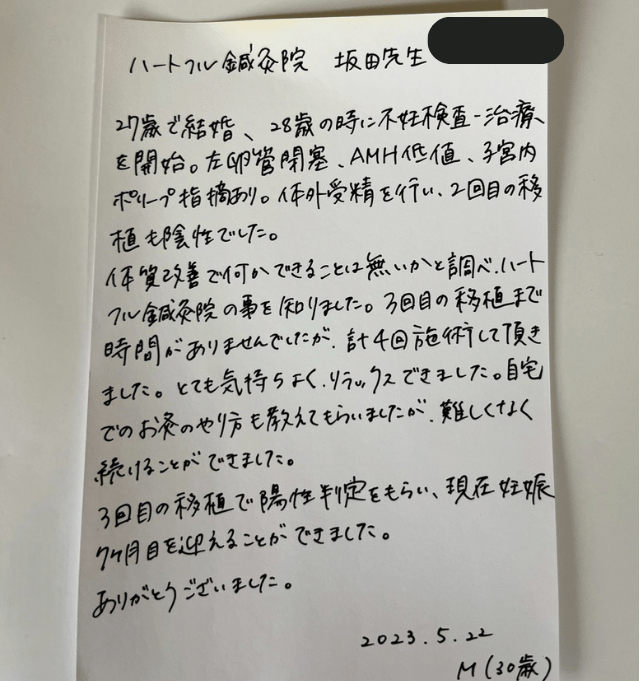 ハートフル鍼灸院 坂田先生
27歳で結婚、28歳の時に不妊検査-治療
を開始。左卵管閉塞、AMH低値、子宮内
ポリープ指摘あり。体外受精を行い、2回目の移
植も陰性でした。
体質改善で何かできることは無いかと調べ、ハート
フル鍼灸院の事を知りました。3回目の移植まで
時間がありませんでしたが、計4回施術して頂き
ました。とても気持ちよく、リラックスできました。自宅
でのお灸のやり方も教えてもらいましたが、難しくなく
続けることができました。
3回目の移植で陽性判定をもらい、現在妊娠
7ヶ月目を迎えることができました。
ありがとうございました。
2023.5.22
M(30歳)